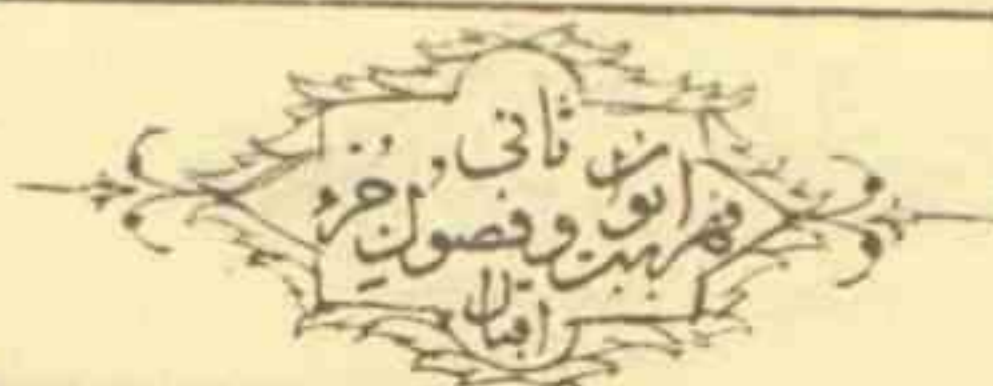 فهرست ابواب و فصول جزء ثانى
اقبال